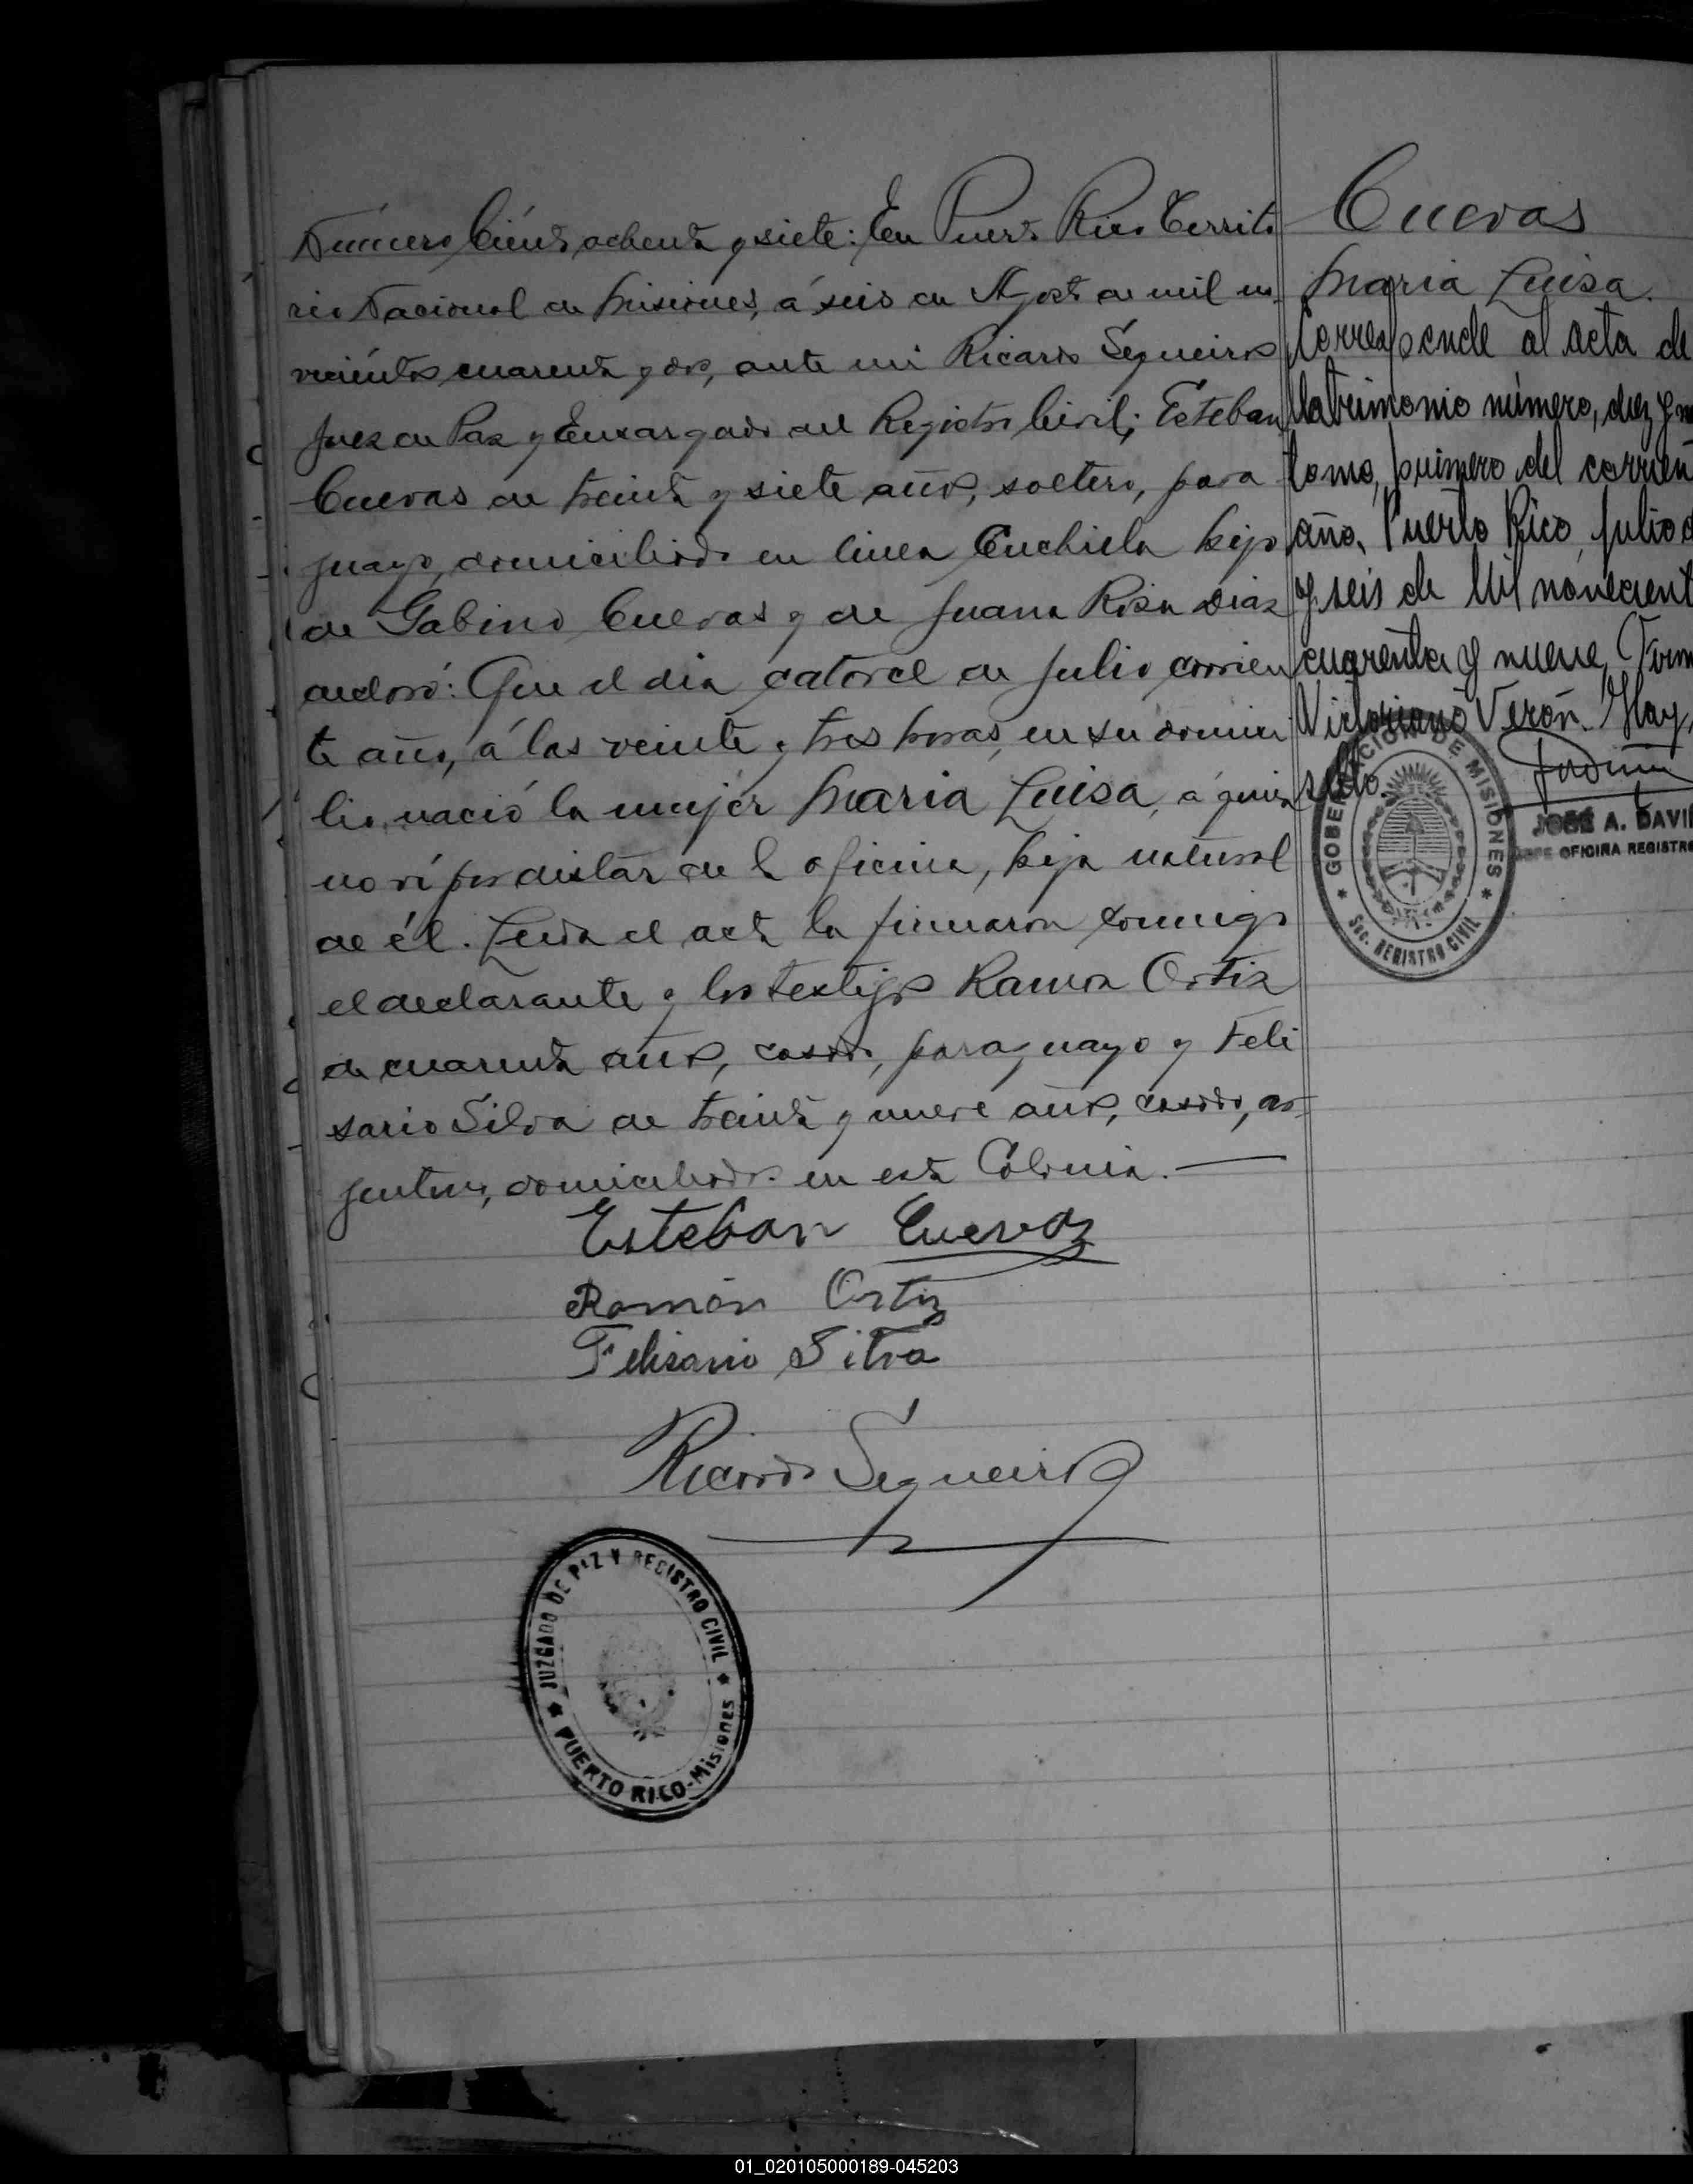 Número Ciento ochenta y siete: En Puerto Rico Territo
rio Nacional de Misiones, á seis de Agosto de mil no-
vecientos cuarenta y dos, ante mi Ricardo Sequeiros
Juez de Paz y Encargado del Registro Civil; Esteban
Cuevas de treinta y siete años, soltero, para
guayo, domiciliado en linea Cuchilla hijo
de Gabino Cuevas y de Juana Rosa Diaz
declaró: Que el dia catorce de Julio corrien
te año, á las veinte y tres horas, en su domici
lio, nació la mujer Maria Luisa, á quien
no ví por distar de la oficina, hija natural
de él. Leida el acta la firmaron conmigo
el declarante y los testigos Ramon Ortiz
de cuarenta años, casado, paraguayo y Feli
sario Silva de treinta y nueve años, casado, ar-
gentino, domiciliados en esta Colonia.
Esteban Cuevas
Ramón Ortiz
Felisario Silva
Ricardo Sequeiros
JUZGADO DE PAZ Y REGISTRO CIVIL
PUERTO RICO-Misiones
Cuevas
Maria Luisa.
Corresponde al acta de
Matrimonio número, diez y
tomo, primero del corrien
año. Puerto Rico, Julio
y seis de Mil novecient
cuarenta y nueve, Firm
Victoriano Verón. Hay
sello.
GOBERNACION DE MISIONES
Sec. REGISTRO CIVIL
JOSÉ A. DAVI
JEFE OFICINA REGISTRO
01_020105000189-045203